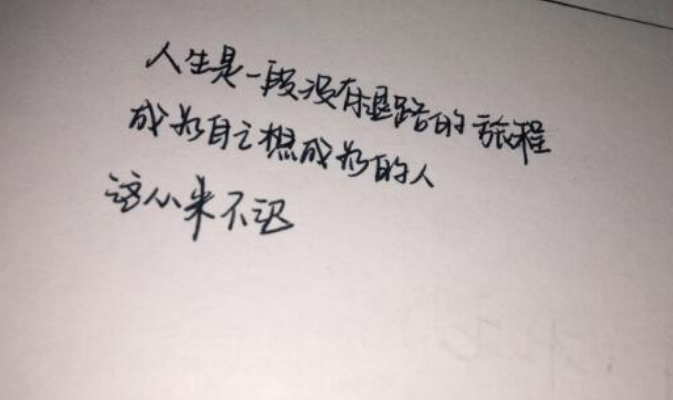 人生是一段没有退路的旅程
成为自己想成为的人
这从来不迟